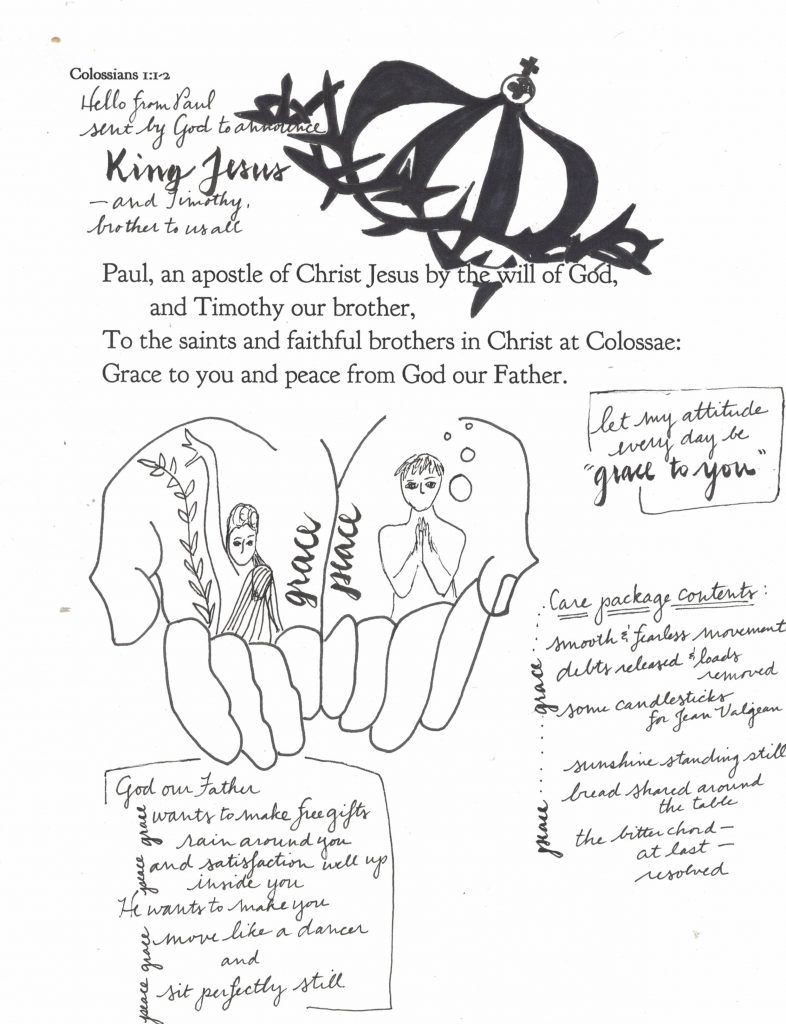 Colossians 1:1-2
Hello from Paul
sent by God to announce
King Jesus
— and Timothy,
brother to us all
Paul, an apostle of Christ Jesus by the will of God,
and Timothy our brother,
To the saints and faithful brothers in Christ at Colossae:
Grace to you and peace from God our Father.
let my attitude
every day be
"grace to you"
grace
peace
Care package contents:
smooth & fearless movement
debts released & loads
removed
some candlesticks
for Jean Valjean
grace
sunshine standing still
bread shared around
the table
the bitter chord —
at last —
resolved
peace
God our Father
wants to make free gifts
rain around you
and satisfaction well up
inside you
He wants to make you
move like a dancer
and
sit perfectly still
peace grace
peace grace